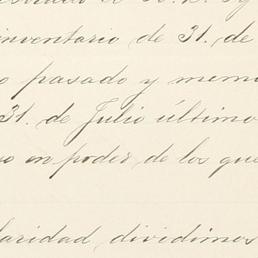 inventario de 31. de
o pasado y mem
31. de Julio último
en poder de los que
laridad, dividimos